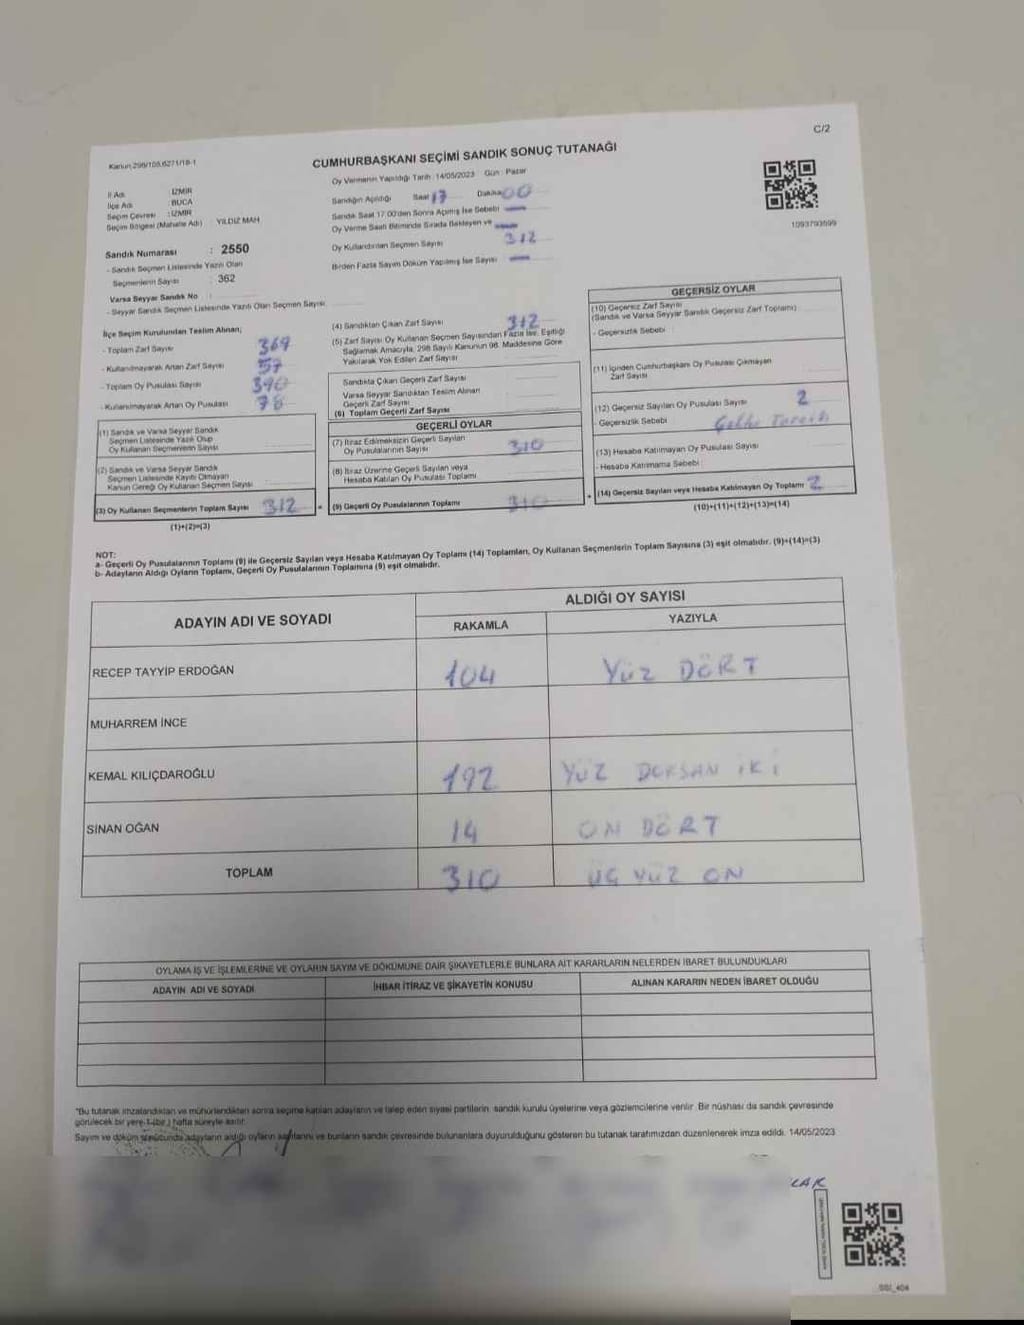 C/2
Kanun 298/105,6271/18-1
CUMHURBAŞKANI SEÇİMİ SANDIK SONUÇ TUTANAĞI
Oy Vermenin Yapıldığı Tarih :14/05/2023 Gün : Pazar
İl Adı : İZMİR
İlçe Adı : BUCA
Seçim Çevresi : İZMİR
Seçim Bölgesi (Mahalle Adı) : YILDIZ MAH
Sandık Numarası : 2550
- Sandık Seçmen Listesinde Yazılı Olan
Seçmenlerin Sayısı : 362
Varsa Seyyar Sandık No :
- Seyyar Sandık Seçmen Listesinde Yazılı Olan Seçmen Sayısı
Sandığın Açıldığı Saat 17 Dakika 00
Sandık Saat 17:00'den Sonra Açılmış İse Sebebi —
Oy Verme Saati Bitiminde Sırada Bekleyen ve —
Oy Kullandırılan Seçmen Sayısı 312
Birden Fazla Sayım Döküm Yapılmış İse Sayısı —
1093793599
İlçe Seçim Kurulundan Teslim Alınan;
- Toplam Zarf Sayısı 369
- Kullanılmayarak Artan Zarf Sayısı 57
- Toplam Oy Pusulası Sayısı 390
- Kullanılmayarak Artan Oy Pusulası 78
(1) Sandık ve Varsa Seyyar Sandık
Seçmen Listesinde Yazılı Olup
Oy Kullanan Seçmenlerin Sayısı
(2) Sandık ve Varsa Seyyar Sandık
Seçmen Listesinde Kayıtlı Olmayan
Kanun Gereği Oy Kullanan Seçmen Sayısı
(3) Oy Kullanan Seçmenlerin Toplam Sayısı 312
(1)+(2)=(3)
(4) Sandıktan Çıkan Zarf Sayısı 312
(5) Zarf Sayısı Oy Kullanan Seçmen Sayısından Fazla İse, Eşitliği
Sağlamak Amacıyla, 298 Sayılı Kanunun 98. Maddesine Göre
Yakılarak Yok Edilen Zarf Sayısı
Sandıkta Çıkan Geçerli Zarf Sayısı
Varsa Seyyar Sandıktan Teslim Alınan
Geçerli Zarf Sayısı
(6) Toplam Geçerli Zarf Sayısı
GEÇERLİ OYLAR
(7) İtiraz Edilmeksizin Geçerli Sayılan
Oy Pusulalarının Sayısı 310
(8) İtiraz Üzerine Geçerli Sayılan veya
Hesaba Katılan Oy Pusulası Toplamı
(9) Geçerli Oy Pusulalarının Toplamı 310
GEÇERSİZ OYLAR
(10) Geçersiz Zarf Sayısı
(Sandık ve Varsa Seyyar Sandık Geçersiz Zarf Toplamı)
- Geçersizlik Sebebi :
(11) İçinden Cumhurbaşkanı Oy Pusulası Çıkmayan
Zarf Sayısı
(12) Geçersiz Sayılan Oy Pusulası Sayısı 2
- Geçersizlik Sebebi :
(13) Hesaba Katılmayan Oy Pusulası Sayısı
- Hesaba Katılmama Sebebi :
(14) Geçersiz Sayılan veya Hesaba Katılmayan Oy Toplamı 2
(10)+(11)+(12)+(13)=(14)
NOT:
a- Geçerli Oy Pusulalarının Toplamı (9) ile Geçersiz Sayılan veya Hesaba Katılmayan Oy Toplamı (14) Toplamları, Oy Kullanan Seçmenlerin Toplam Sayısına (3) eşit olmalıdır. (9)+(14)=(3)
b- Adayların Aldığı Oyların Toplamı, Geçerli Oy Pusulalarının Toplamına (9) eşit olmalıdır.
ADAYIN ADI VE SOYADI
ALDIĞI OY SAYISI
RAKAMLA YAZIYLA
RECEP TAYYİP ERDOĞAN 104 YÜZ DÖRT
MUHARREM İNCE
KEMAL KILIÇDAROĞLU 192 YÜZ DOKSAN İKİ
SİNAN OĞAN 14 ON DÖRT
TOPLAM 310 ÜÇ YÜZ ON
OYLAMA İŞ VE İŞLEMLERİNE VE OYLARIN SAYIM VE DÖKÜMÜNE DAİR ŞİKAYETLERLE BUNLARA AİT KARARLARIN NELERDEN İBARET BULUNDUKLARI
ADAYIN ADI VE SOYADI İHBAR İTİRAZ VE ŞİKAYETİN KONUSU ALINAN KARARIN NEDEN İBARET OLDUĞU
*Bu tutanak imzalandıktan ve mühürlendikten sonra seçime katılan adayların ve talep eden siyasi partilerin, sandık kurulu üyelerine veya gözlemcilerine verilir. Bir nüshası da sandık çevresinde
görülecek bir yere 1 (bir) hafta süreyle asılır.
Sayım ve döküm sonucunda adayların aldığı oyların sayılarını ve bunların sandık çevresinde bulunanlara duyurulduğunu gösteren bu tutanak tarafımızdan düzenlenerek imza edildi. 14/05/2023
LAK
SSI_404